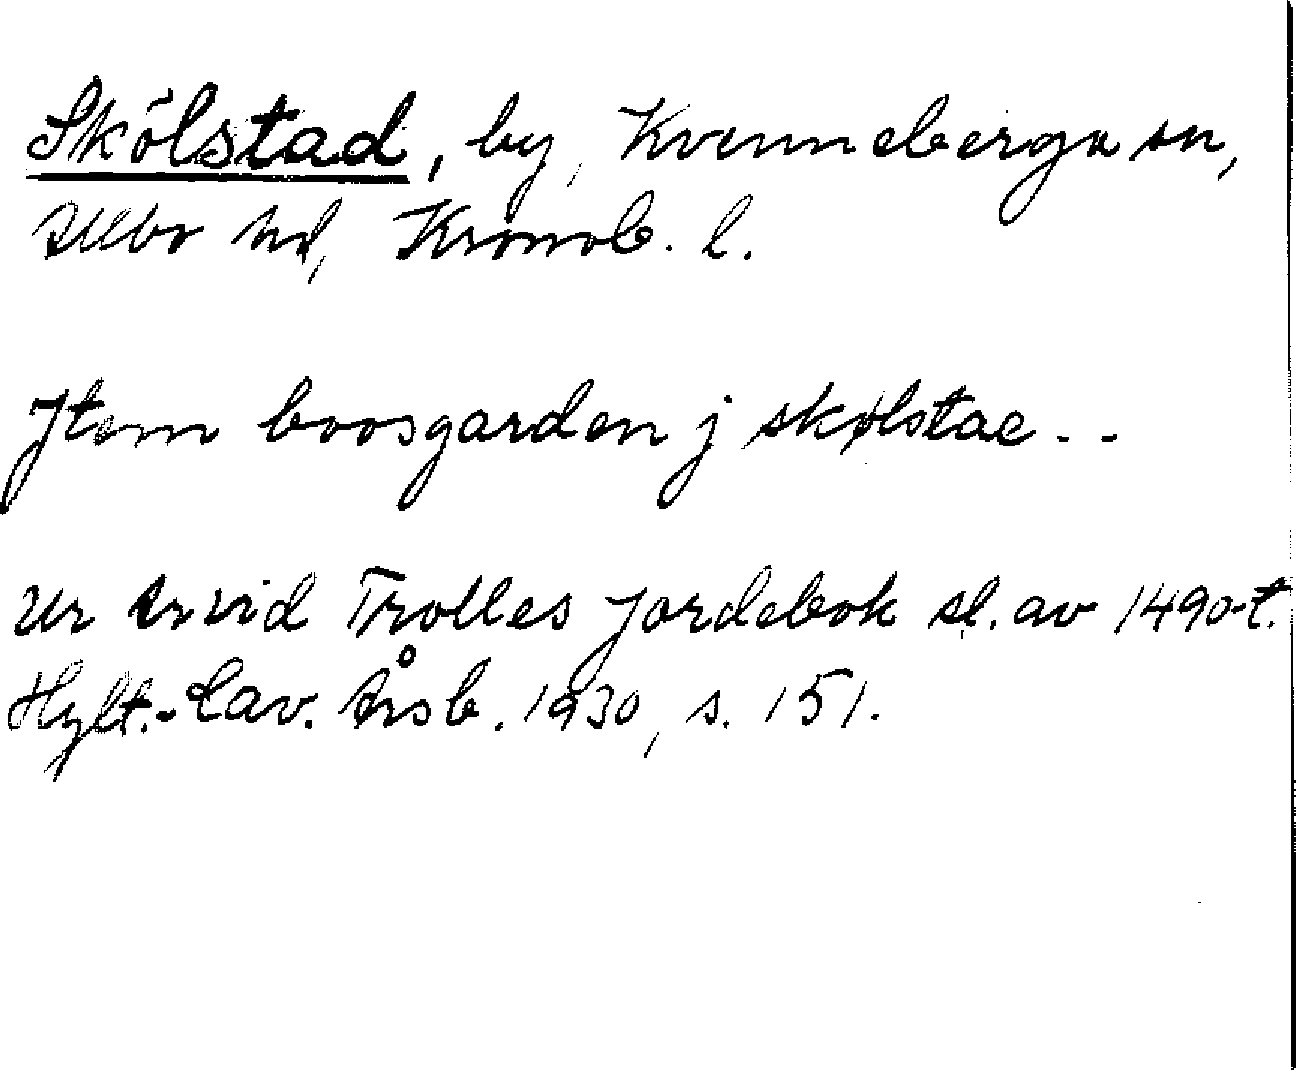 Skölstad, by, Kvenneberga sn,
Allbo hd, Kronob. l.
Jtem boosgarden j skølstae - -
Ur Arvid Trolles jordebok sl. av 1490-t.
Hylt.-Cav. Årsb. 1930, s. 151.